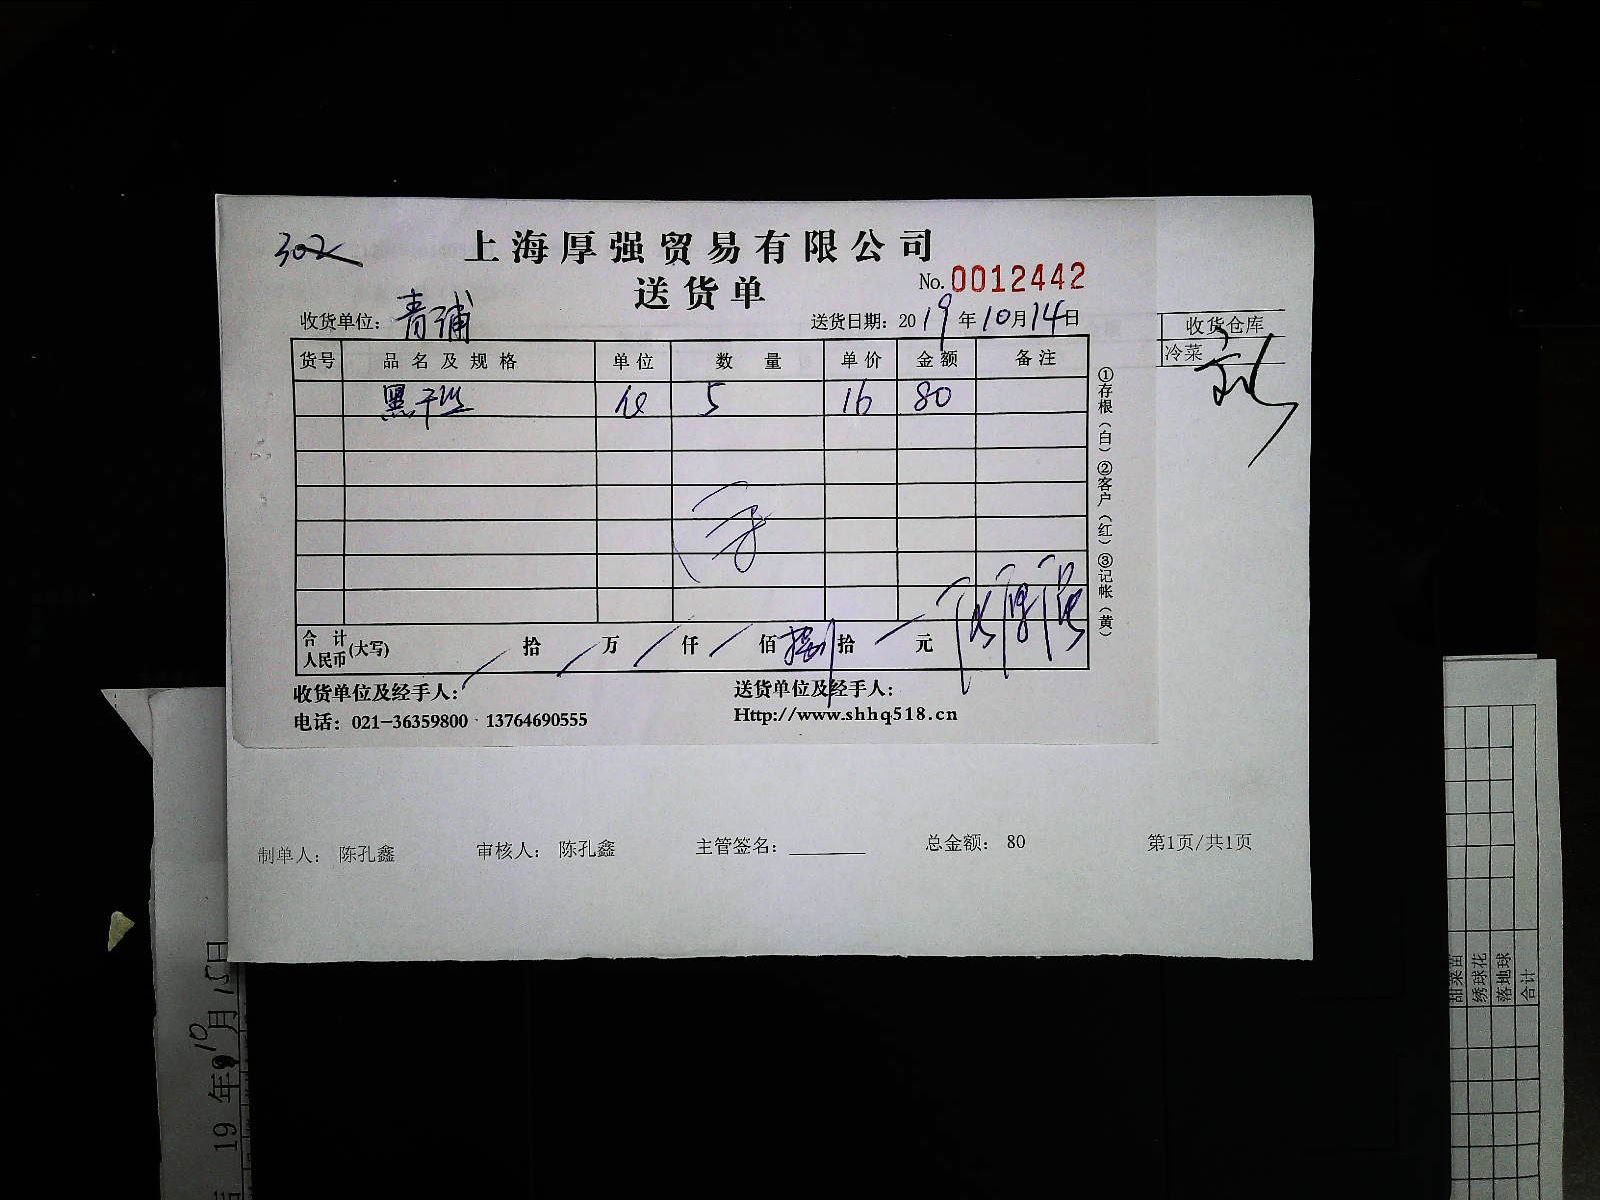 302
上海厚强贸易有限公司
送货单
No. 0012442
收货单位: 青浦
送货日期: 2019年10月14日
货号 品名及规格 单位 数量 单价 金额 备注
黑干丝 5 16 80
合计人民币(大写) 拾 万 仟 佰 捌拾 元
收货单位及经手人:
送货单位及经手人:
电话: 021-36359800 · 13764690555
Http://www.shhq518.cn
①存根(白)②客户(红)③记帐(黄)
收货仓库
冷菜
制单人: 陈孔鑫 审核人: 陈孔鑫 主管签名: 总金额: 80 第1页/共1页
19年10月15日
甜菜苗
绣球花
落地球
合计